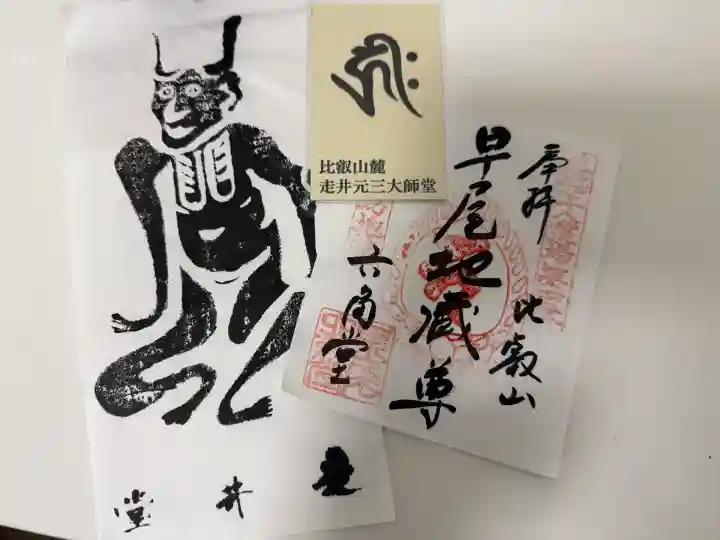 比叡山麓
走井元三大師堂
奉拝
比叡山
早尾地蔵尊
六角堂
走井堂